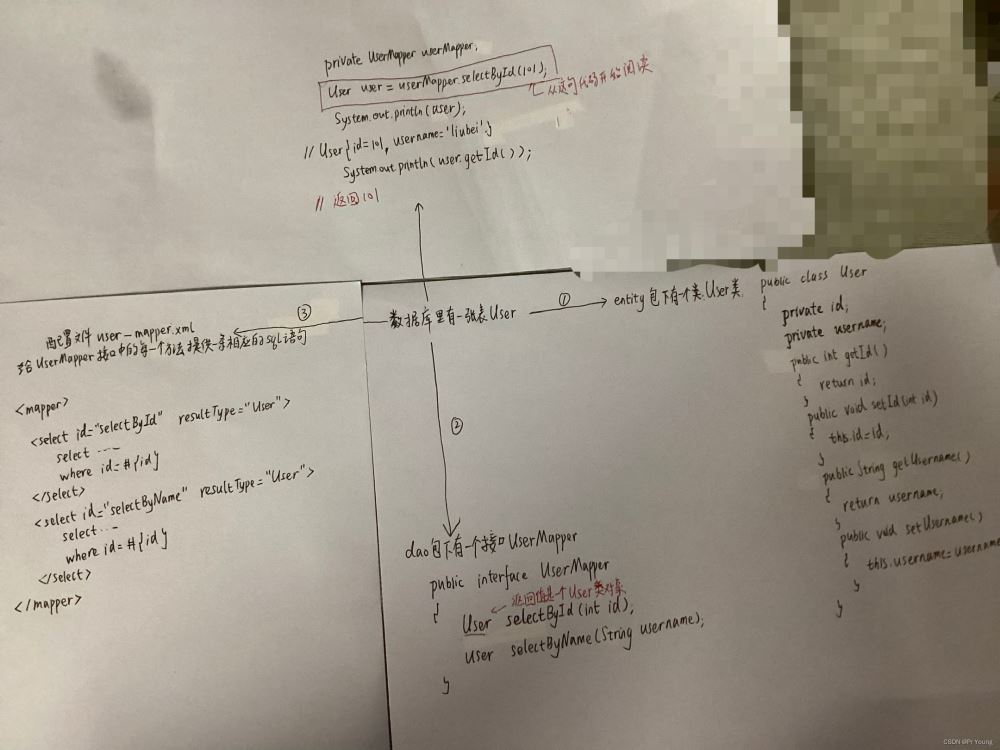 private UserMapper userMapper;
User user = userMapper.selectById(101);
从这句代码开始阅读
System.out.println(user);
// User{id=101, username='liubei'}
System.out.println(user.getId());
// 返回101
数据库里有一张表User
①
entity包下有一个类:User类
public class User
{
private id;
private username;
public int getId()
{
return id;
}
public void setId(int id)
{ this.id=id;
}
public String getUsername()
{
return username;
}
public void setUsername()
{ this.username=username
}
}
③
配置文件 user-mapper.xml
给UserMapper接口中的每一个方法提供一条相应的sql语句
<mapper>
<select id="selectById" resultType="User">
select ----
where id=#{id}
</select>
<select id="selectByName" resultType="User">
select ---
where id=#{id}
</select>
</mapper>
②
dao包下有一个接口UserMapper
public interface UserMapper
{
返回值是个User类对象
User selectById(int id);
User selectByName(String username);
}
CSDN @Pr Young